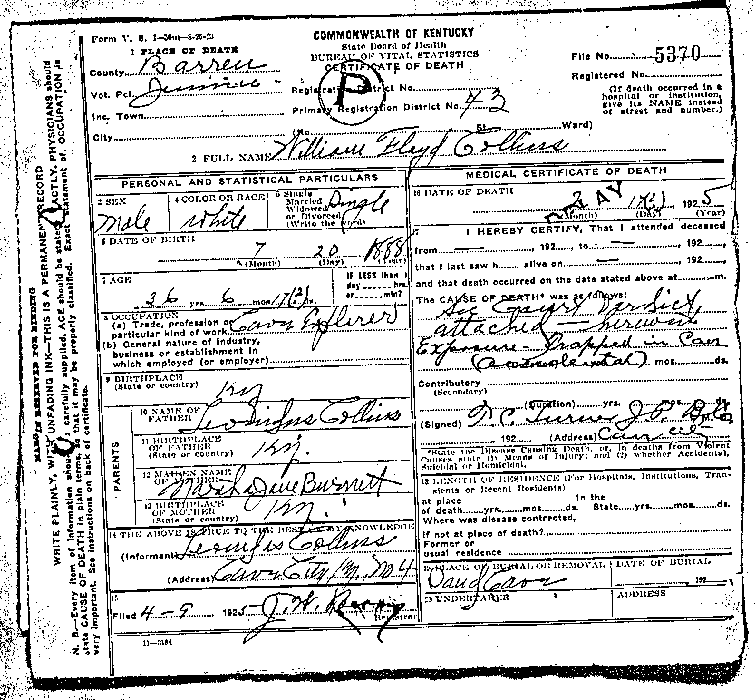 Form V. S. 1
COMMONWEALTH OF KENTUCKY
State Board of Health
BUREAU OF VITAL STATISTICS
CERTIFICATE OF DEATH
1 PLACE OF DEATH
County Barren
File No. 5370
Registered No.
Vot. Pct.
Registration District No.
P
Inc. Town
Primary Registration District No. 73
(If death occurred in a
hospital or institution,
give its NAME instead
of street and number.)
City (No. St. Ward)
2 FULL NAME William Floyd Collins
PERSONAL AND STATISTICAL PARTICULARS
3 SEX
Male
4 COLOR OR RACE
White
5 Single
Married
Widowed
or Divorced
(Write the word)
Single
6 DATE OF BIRTH
7 20 1888
(Month) (Day) (Year)
7 AGE
36 yrs. 6 mos.
IF LESS than 1
day hrs.
or min?
8 OCCUPATION
(a) Trade, profession or
particular kind of work Cave Explorer
(b) General nature of industry,
business or establishment in
which employed (or employer)
9 BIRTHPLACE
(State or country) Ky
PARENTS
10 NAME OF
FATHER Collins
11 BIRTHPLACE
OF FATHER
(State or country) Ky.
12 MAIDEN NAME
OF MOTHER Martha Jane Burnett
13 BIRTHPLACE OF
MOTHER
(State or country) Ky.
14 THE ABOVE IS TRUE TO THE BEST OF MY KNOWLEDGE
(Informant) Collins
(Address) Cave City Ky. No 4
15
Filed 4-9 1925
Registrar
11-3184
MEDICAL CERTIFICATE OF DEATH
16 DATE OF DEATH
1925
(Month) (Day) (Year)
17 I HEREBY CERTIFY, That I attended deceased
from , 192 , to , 192 ,
that I last saw h alive on , 192 ,
and that death occurred on the date stated above at m.
The CAUSE OF DEATH* was as follows:
See Court Verdict
attached
Exposure - Trapped in Cave
(accidental) mos. ds.
Contributory
(Secondary)
(Duration) yrs. mos. ds.
(Signed) Turner J.P.
192 (Address) Cave City
*State the Disease Causing Death, or, in deaths from Violent
Causes state (1) Means of Injury; and (2) whether Accidental,
Suicidal or Homicidal.
18 LENGTH OF RESIDENCE (For Hospitals, Institutions, Tran-
sients or Recent Residents)
At place
of death yrs. mos. ds.
In the
State yrs. mos. ds.
Where was disease contracted,
If not at place of death?
Former or
usual residence
19 PLACE OF BURIAL OR REMOVAL
Sand Cave
DATE OF BURIAL
192
20 UNDERTAKER
ADDRESS
MARGIN RESERVED FOR BINDING
WRITE PLAINLY, WITH UNFADING INK—THIS IS A PERMANENT RECORD
N. B.—Every item of information should be carefully supplied. AGE should be stated EXACTLY. PHYSICIANS should
state CAUSE OF DEATH in plain terms, so that it may be properly classified. Exact statement of OCCUPATION is
very important. See instructions on back of certificate.